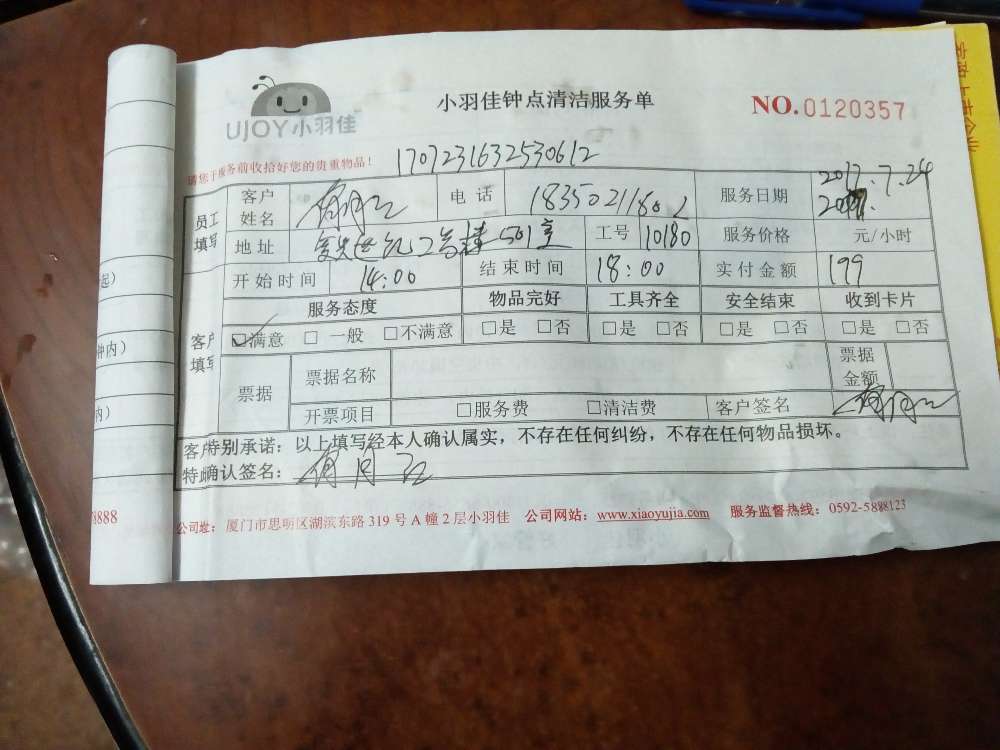 UJOY小羽佳
小羽佳钟点清洁服务单
NO.0120357
请您于服务前收拾好您的贵重物品!
1707231632530612
员工填写 客户姓名 电话 18350211802 服务日期 2017.7.24
地址 2号楼501室 工号 10180 服务价格 元/小时
开始时间 14:00 结束时间 18:00 实付金额 199
起)
客户填写 服务态度 物品完好 工具齐全 安全结束 收到卡片
钟内) ☑满意 □一般 □不满意 □是 □否 □是 □否 □是 □否 □是 □否
票据 票据名称 票据金额
内) 开票项目 □服务费 □清洁费 客户签名
客户特别承诺:以上填写经本人确认属实,不存在任何纠纷,不存在任何物品损坏。
特此确认签名:
8888 公司址:厦门市思明区湖滨东路 319 号 A 幢 2 层小羽佳 公司网站:www.xiaoyujia.com 服务监督热线:0592-5888123